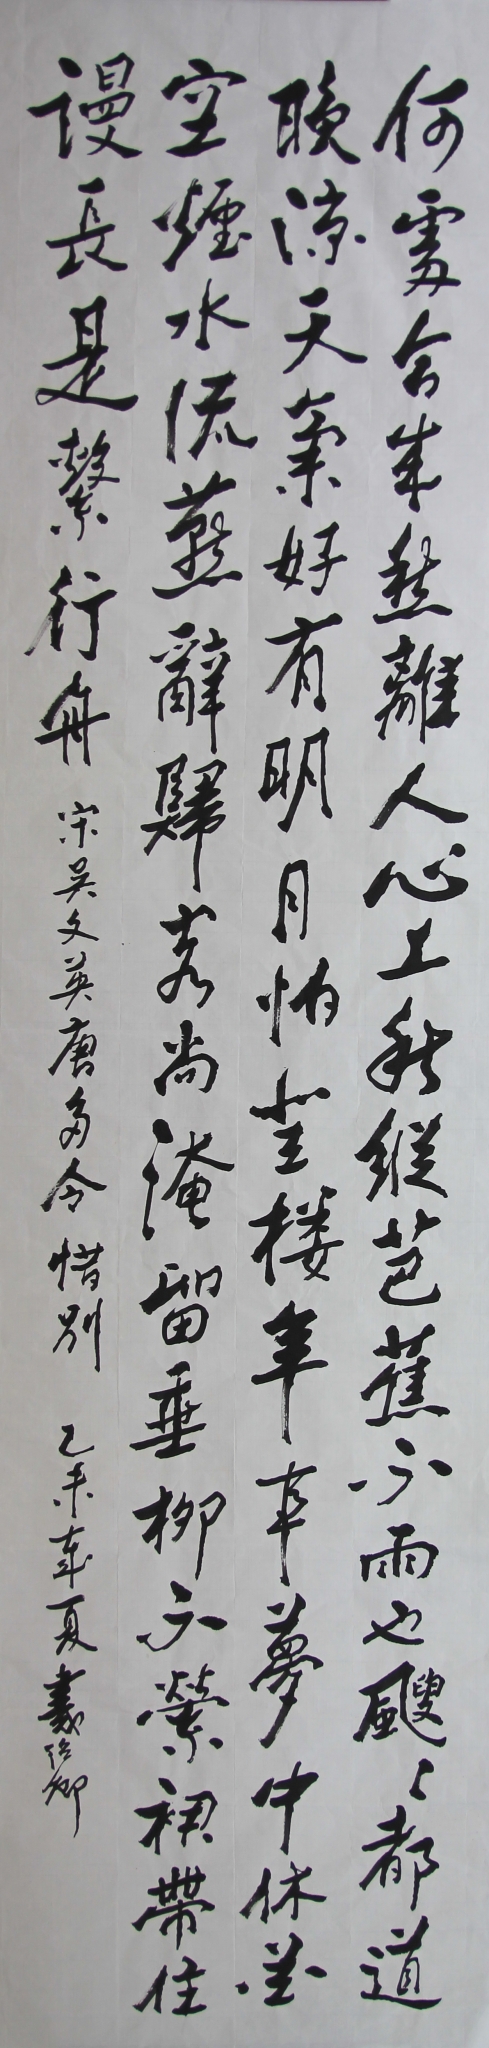 何處合成愁離人心上秋縱芭蕉不雨也颼〻都道
晚涼天氣好有明月怕登楼年事夢中休花
空煙水流燕辭歸客尚淹留垂柳不縈裙帶住
謾長是繫行舟 宋吳文英唐多令惜別 乙未年夏